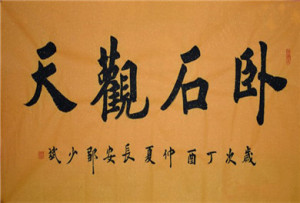 卧石觀天
歲次丁酉仲夏長安郭少武